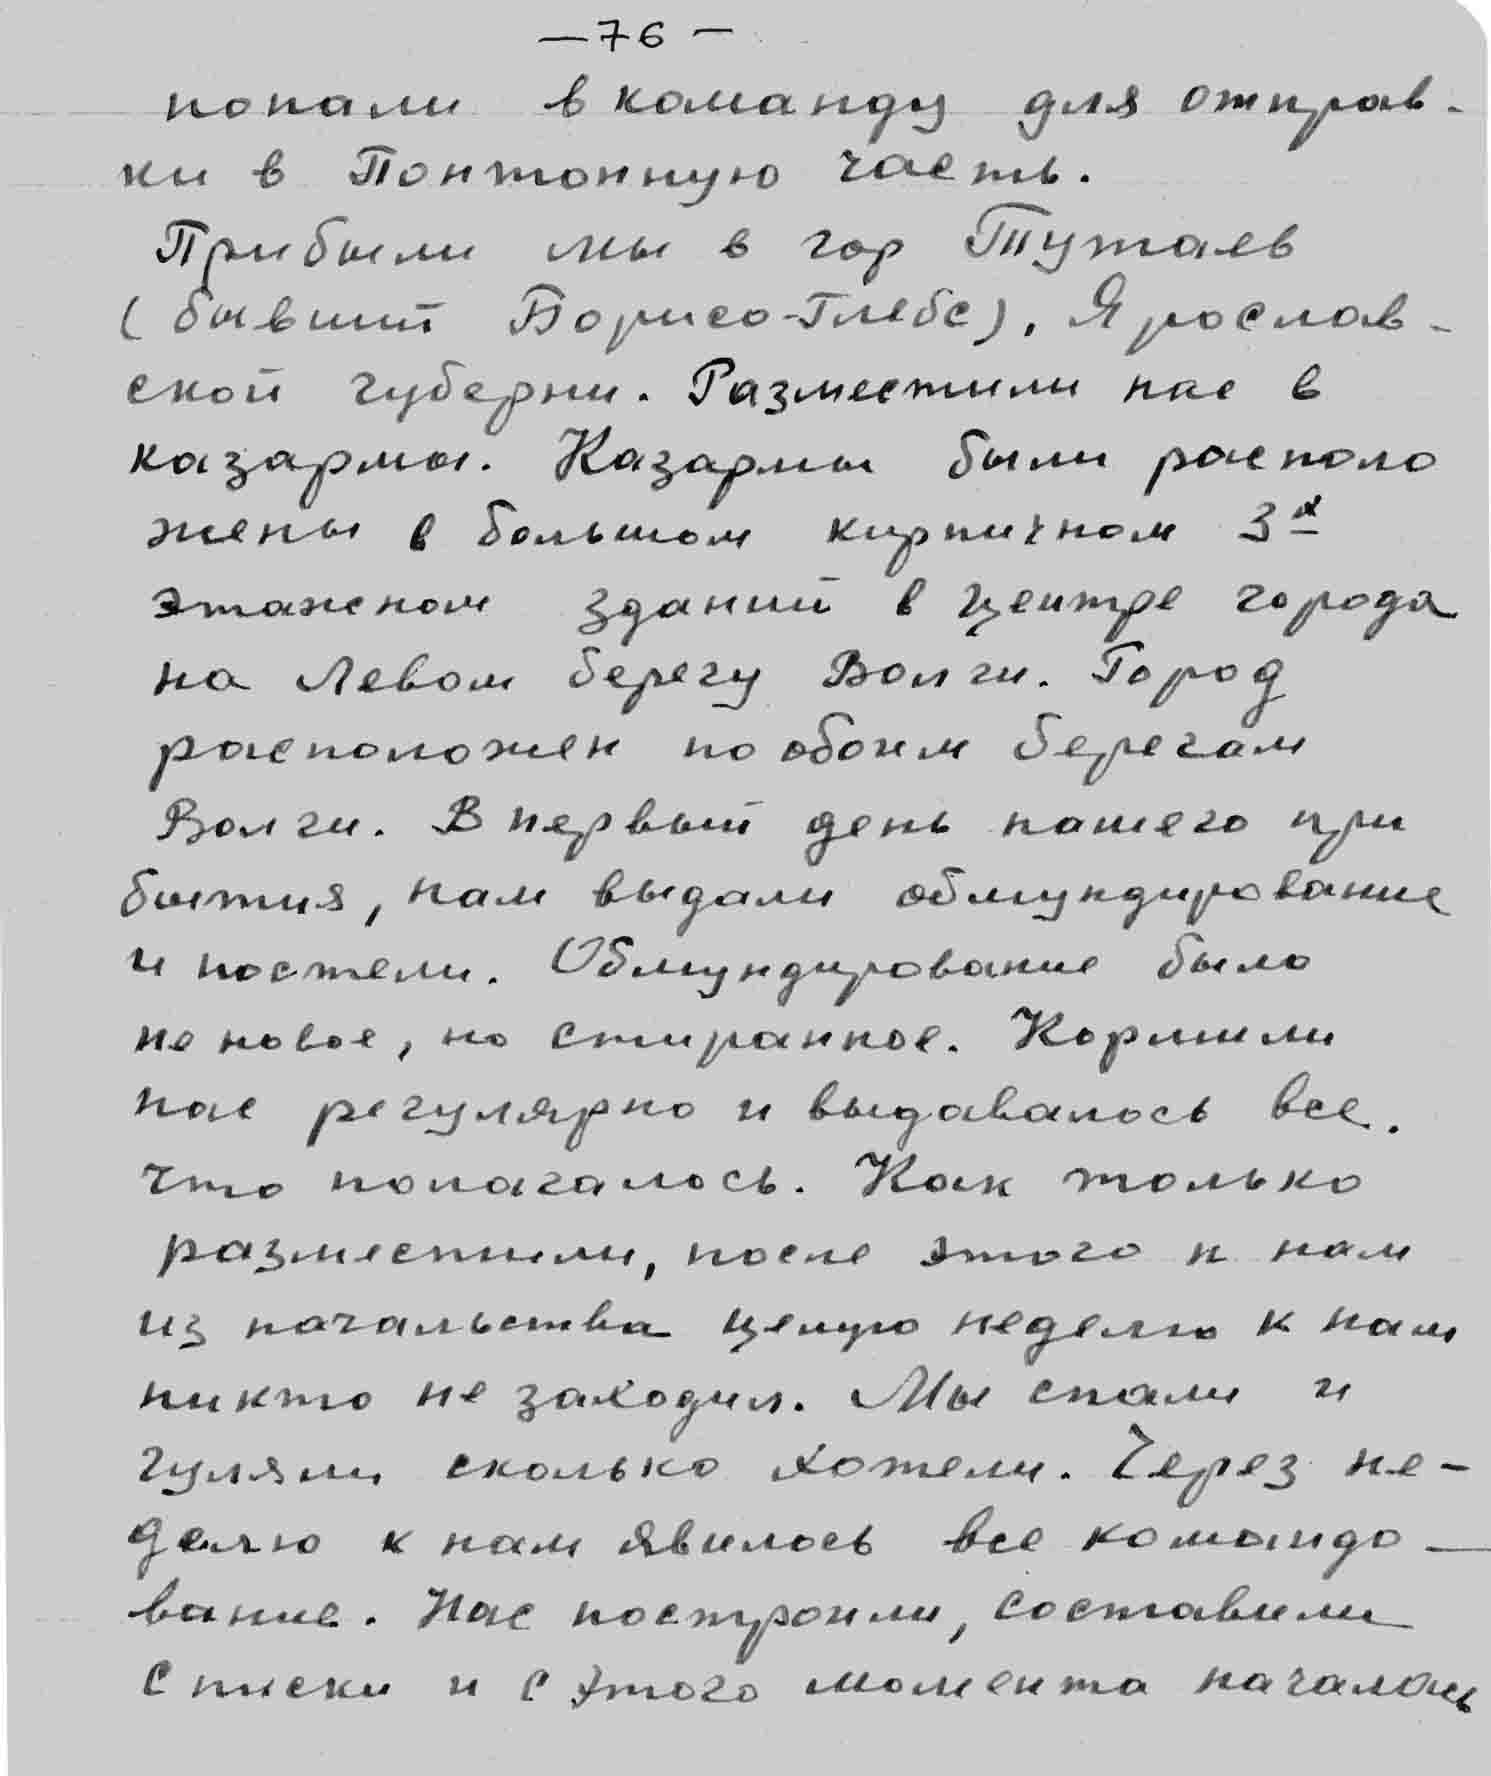 —76—
попали в команду для отправ-
ки в Понтонную часть.
Прибыли мы в гор Тутаев
(бывший Борисо-Глебс), Ярослав-
ской губерни. Разместили нас в
казармы. Казармы были располо
жены в большом кирпичном 3х
этажном зданий в центре города
на Левом берегу Волги. Город
расположен по обоим берегам
Волги. В первый день нашего при
бытия, нам выдали обмундирование
и постели. Обмундирование было
не новое, но стиранное. Кормили
нас регулярно и выдавалось все.
что полагалось. Как только
разместили, после этого к нам
из начальства целую неделю к нам
никто не заходил. Мы спали и
гуляли сколько хотели. Через не-
делю к нам явилось все командо—
вание. Нас построили, составили
списки и с этого момента началась